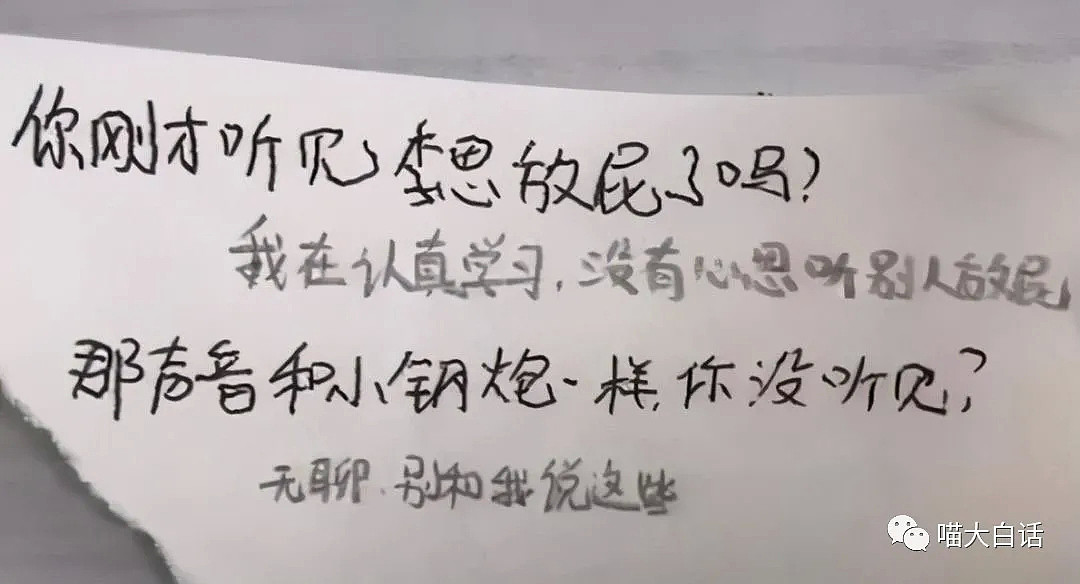 你刚才听见李思放屁了吗?
我在认真学习,没有心思听别人放屁
那声音和小钢炮一样,你没听见?
无聊.别和我说这些
喵大白话